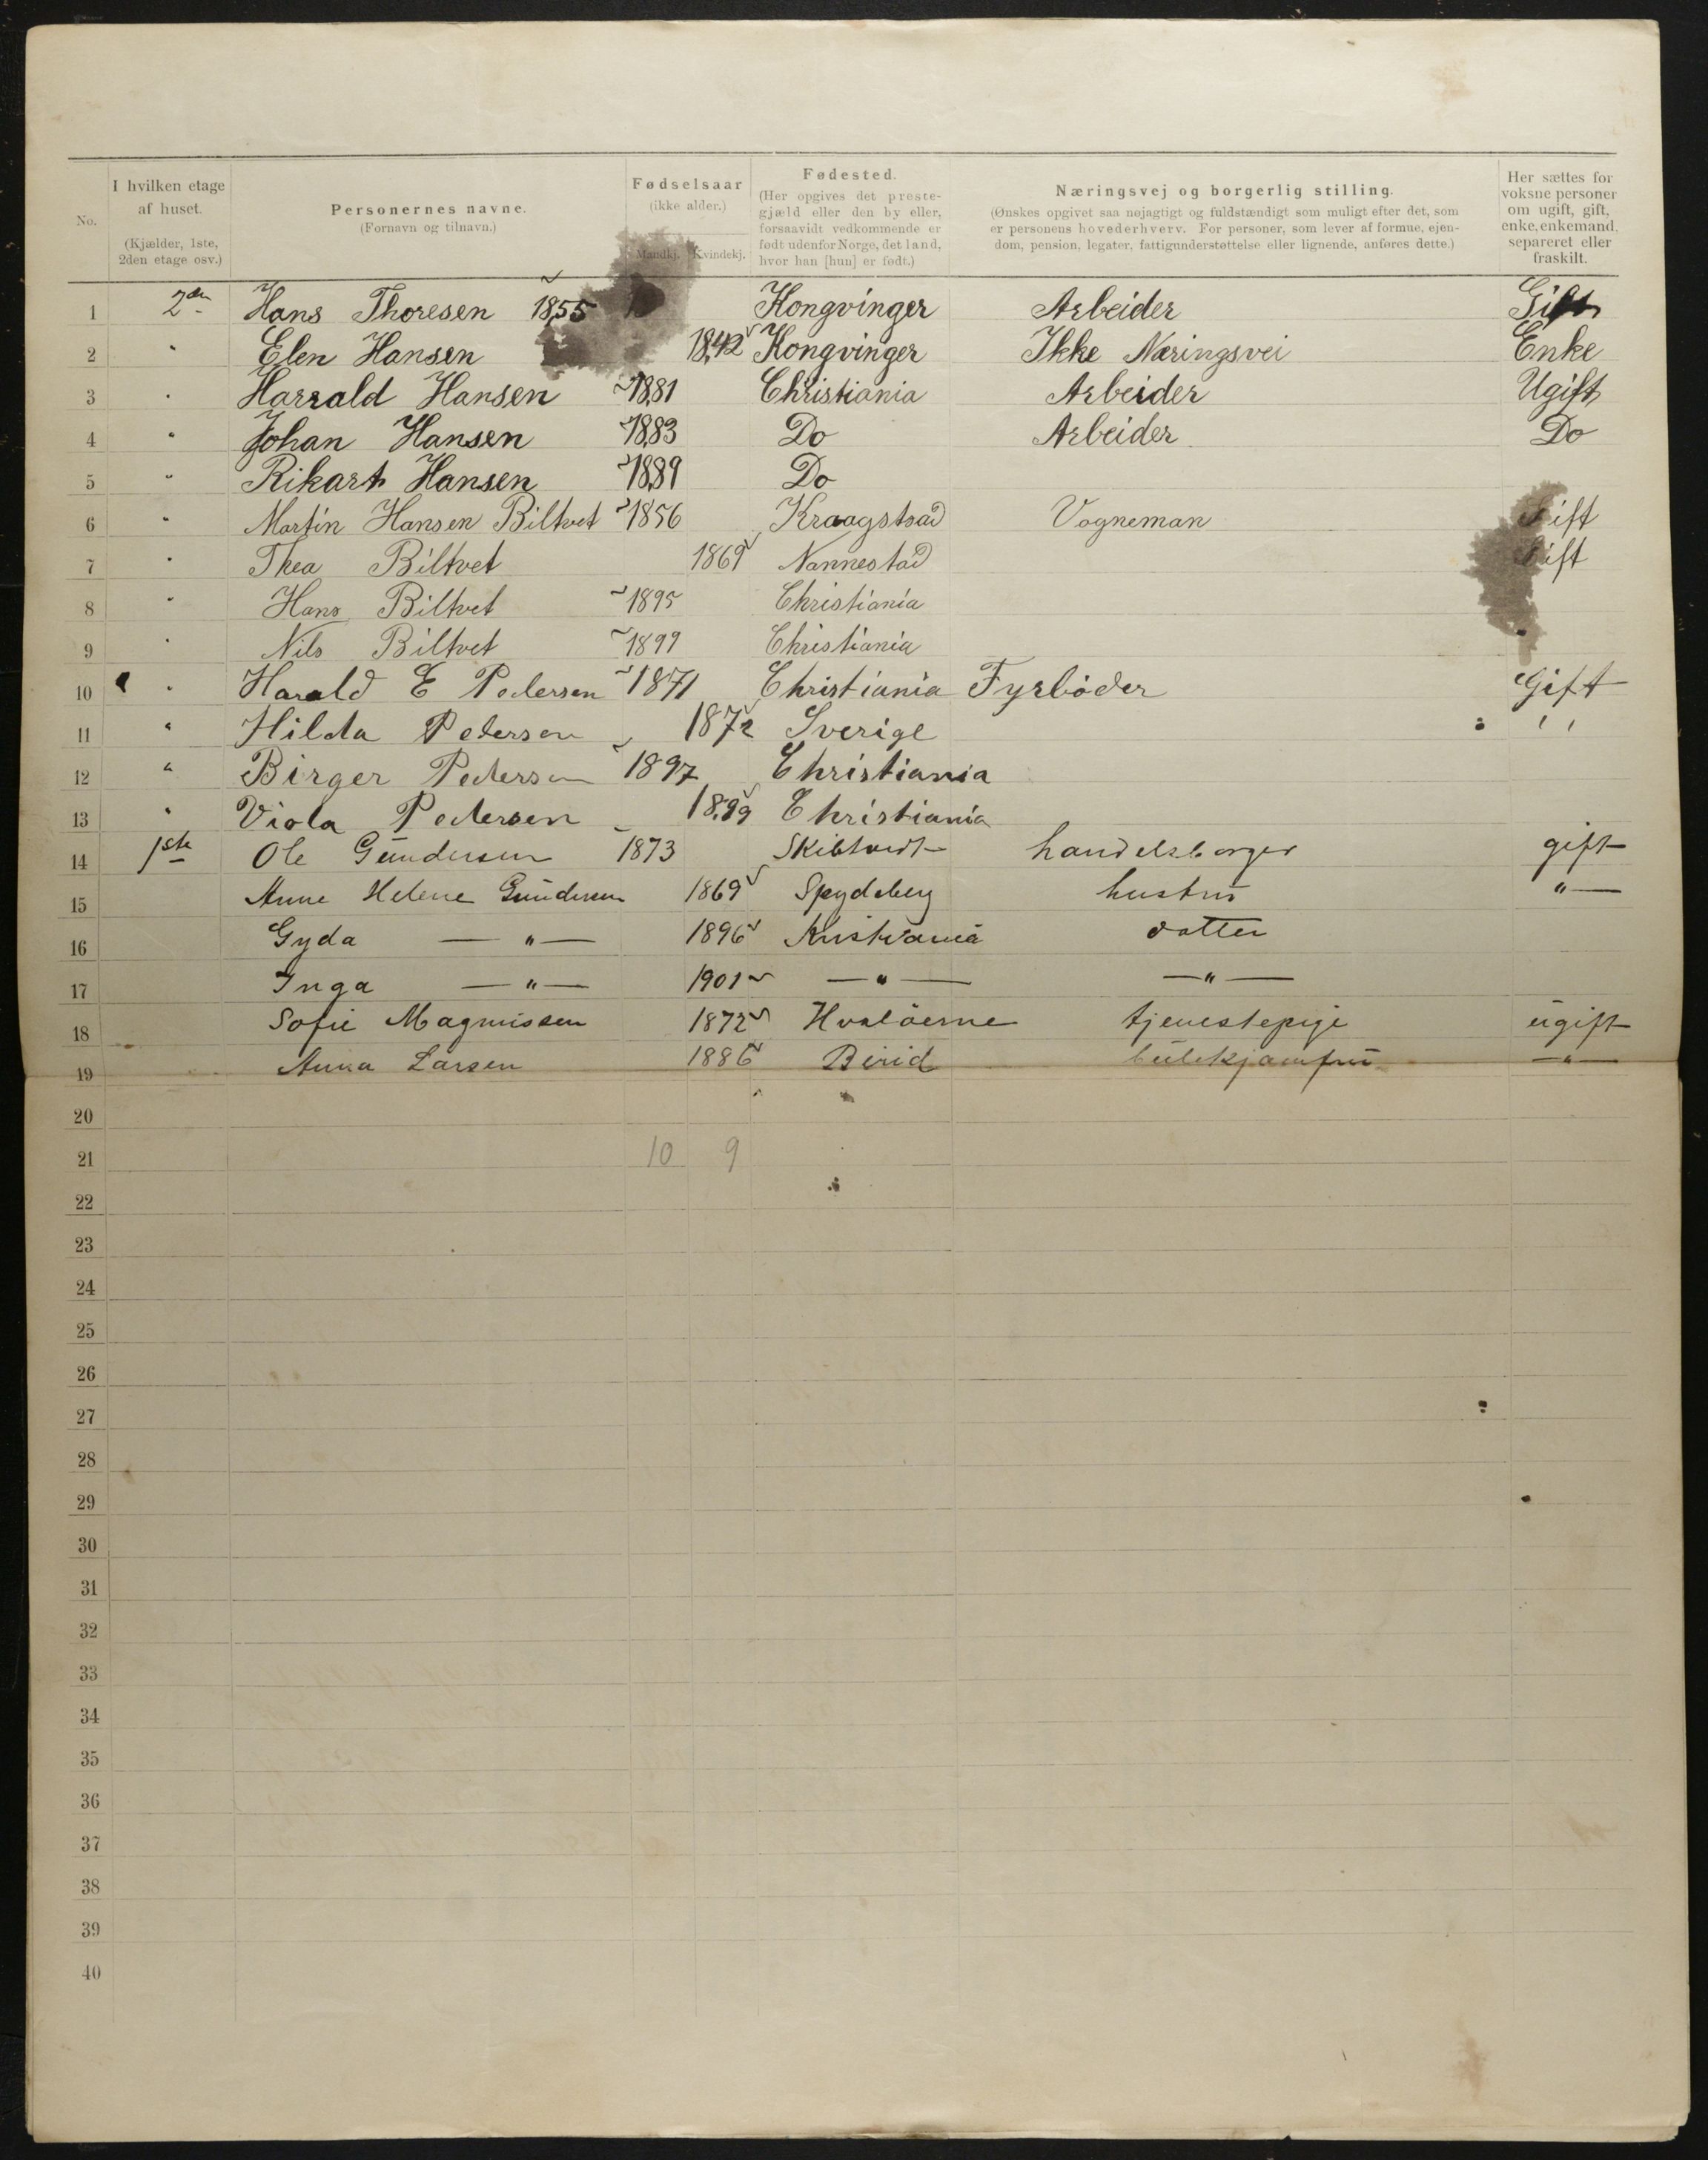 No.
I hvilken etage
af huset.
(Kjælder, 1ste,
2den etage osv.)
Personernes navne.
(Fornavn og tilnavn.)
Fødselsaar
(ikke alder.)
Mandkj. Kvindekj.
Fødested.
(Her opgives det preste-
gjæld eller den by eller,
forsaavidt vedkommende er
født udenfor Norge, det land,
hvor han [hun] er født.)
Næringsvej og borgerlig stilling.
(Ønskes opgivet saa nøjagtigt og fuldstændigt som muligt efter det, som
er personens hovederhverv. For personer, som lever af formue, ejen-
dom, pension, legater, fattigunderstøttelse eller lignende, anføres dette.)
Her sættes for
voksne personer
om ugift, gift,
enke, enkemand,
separeret eller
fraskilt.
1 2den Hans Thoresen 1855 Kongvinger Arbeider Gift
2 " Elen Hansen 1842 Kongvinger Ikke Næringsvei Enke
3 " Harrald Hansen 1881 Christiania Arbeider Ugift
4 " Johan Hansen 1883 Do Arbeider Do
5 " Rikart Hansen 1889 Do
6 " Martin Hansen Biltvet 1856 Kraagstad Vogneman Gift
7 " Thea Biltvet 1869 Nannestad Gift
8 " Hans Biltvet 1895 Christiania
9 " Nils Biltvet 1899 Christiania
10 " Harald E Pedersen 1871 Christiania Fyrbøder Gift
11 " Hilda Pedersen 1872 Sverige ' '
12 " Birger Pedersen 1897 Christiania
13 " Viola Pedersen 1899 Christiania
14 1ste Ole Gundersen 1873 Skibtvedt handelsborger gift
15 Anne Helene Gundersen 1869 Spydeberg hustru —"—
16 Gyda —"— 1896 Kristiania datter
17 Inga —"— 1901 —"— —"—
18 Sofie Magnussen 1872 Hvaløerne tjenestepige ugift
19 Anna Larsen 1886 Birid butikjomfru —"—
20
21 10 9
22
23
24
25
26
27
28
29
30
31
32
33
34
35
36
37
38
39
40